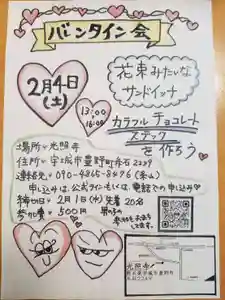 バレンタイン会
2月4日
(土)
13:00
16:00
花束みたいな
サンドイッチ
カラフルチョコレート
スティック
を作ろう
場所 光照寺
住所 宇城市豊野町糸石2239
連絡先 090-4865-8496
申し込みは、公式ラインもしくは、電話での申し込み
締め切り 2月1日(水) 先着20名
参加費 500円
光照寺